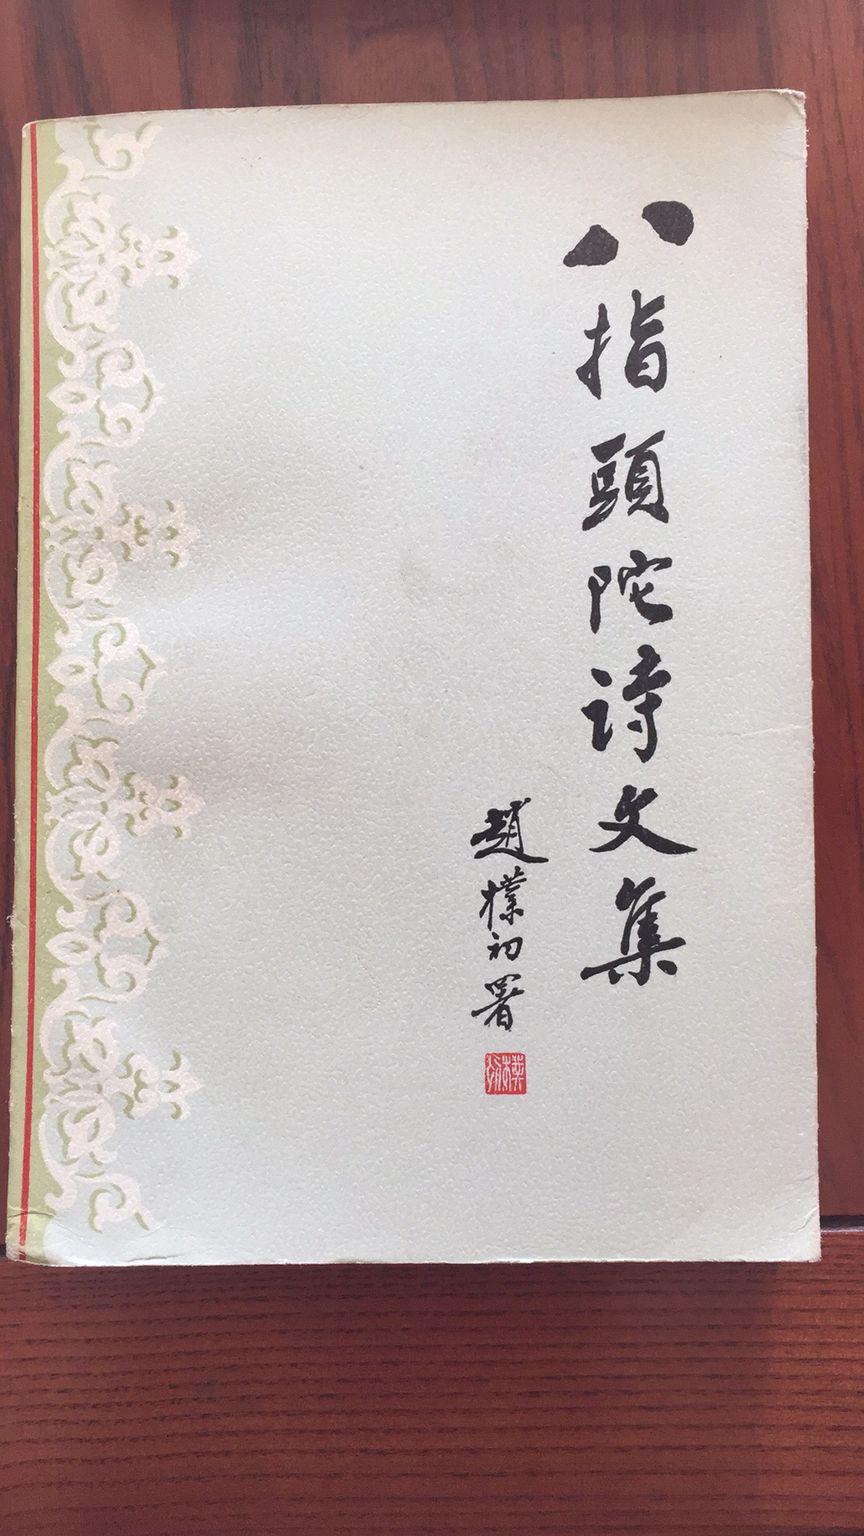 八指頭陀诗文集
趙樸初署